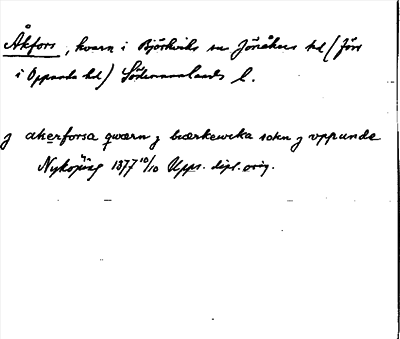 Åkfors, kvarn i Björkviks sn Jönåkers hd (förr
i Oppunda hd) Södermanlands l.
j akerforsa qwærn j biærkewika sokn j vppunda
Nyköping 1377 10/10 Upps. dipl. orig.